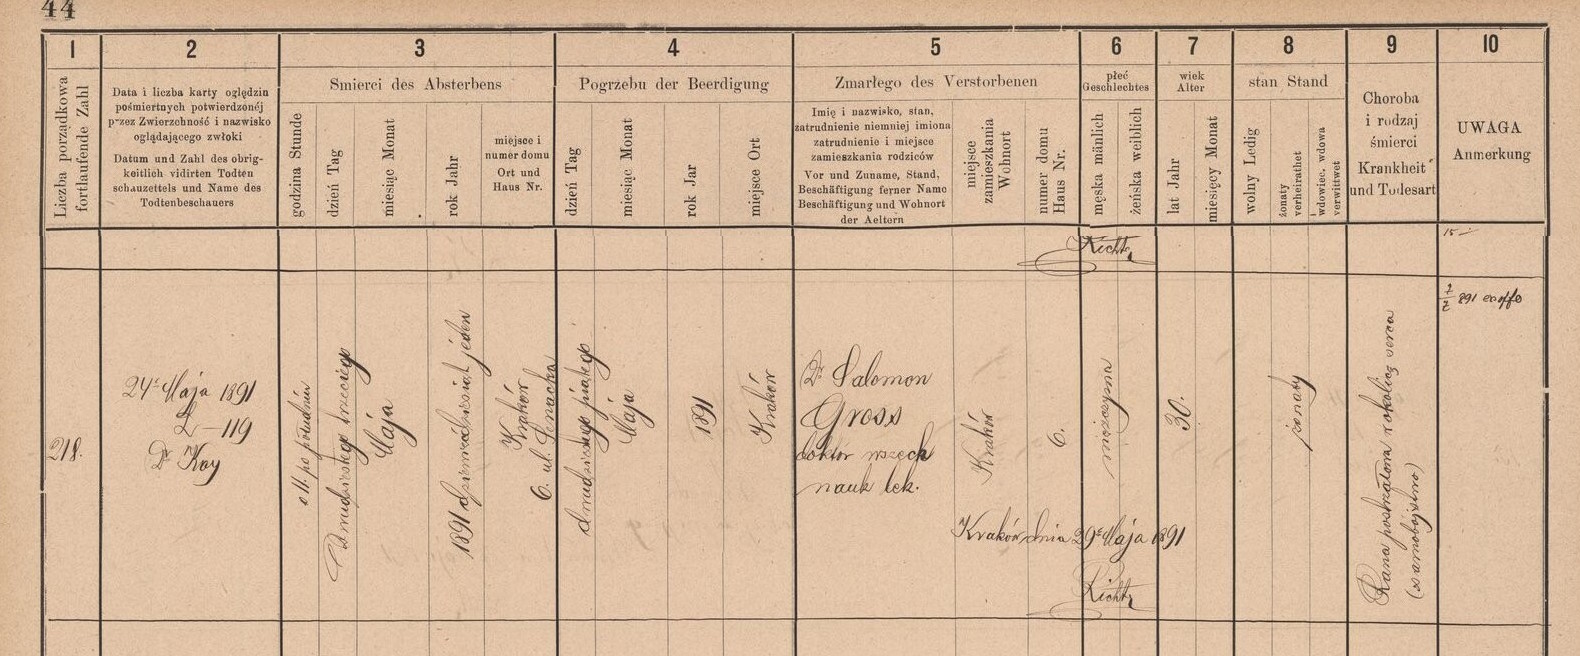 44
1 2 3 4 5 6 7 8 9 10
Liczba porządkowa
fortlaufende Zahl
Data i liczba karty oględzin
pośmiertnych potwierdzonéj
przez Zwierzchność i nazwisko
oglądającego zwłoki
Datum und Zahl des obrig-
keitlich vidirten Todten
schauzettels und Name des
Todtenbeschauers
Smierci des Absterbens
godzina Stunde
dzień Tag
miesiąc Monat
rok Jahr
miejsce i
numer domu
Ort und
Haus Nr.
Pogrzebu der Beerdigung
dzień Tag
miesiąc Monat
rok Jar
miejsce Ort
Zmarłego des Verstorbenen
Imię i nazwisko, stan,
zatrudnienie niemniej imiona
zatrudnienie i miejsce
zamieszkania rodziców
Vor und Zuname, Stand,
Beschäftigung ferner Name
Beschäftigung und Wohnort
der Aeltern
miejsce
zamieszkania
Wohnort
numer domu
Haus Nr.
płeć
Geschlechtes
męska mänlich
żeńska weiblich
wiek
Alter
lat Jahr
miesięcy Monat
stan Stand
wolny Ledig
żonaty
verheirathet
wdowiec, wdowa
verwittwet
Choroba
i rodzaj
śmierci
Krankheit
und Todesart
UWAGA
Anmerkung
Richtr
15
218.
24 Maja 1891
L-119
Dr Kay
o 11. po południu
Dwudziestego trzeciego
Maja
1891 dziewięćdziesiąt jeden
Kraków
6. ul. Senacka
dwudziestego piątego
Maja
1891
Kraków
Dr Salomon
Gross
doktor wszech
nauk lek.
Kraków
6.
męzczyzna
30.
żonaty
Rana postrzałowa okolicy serca
(samobójstwo)
891 ex offo
Kraków dnia 29 Maja 1891
Richtr